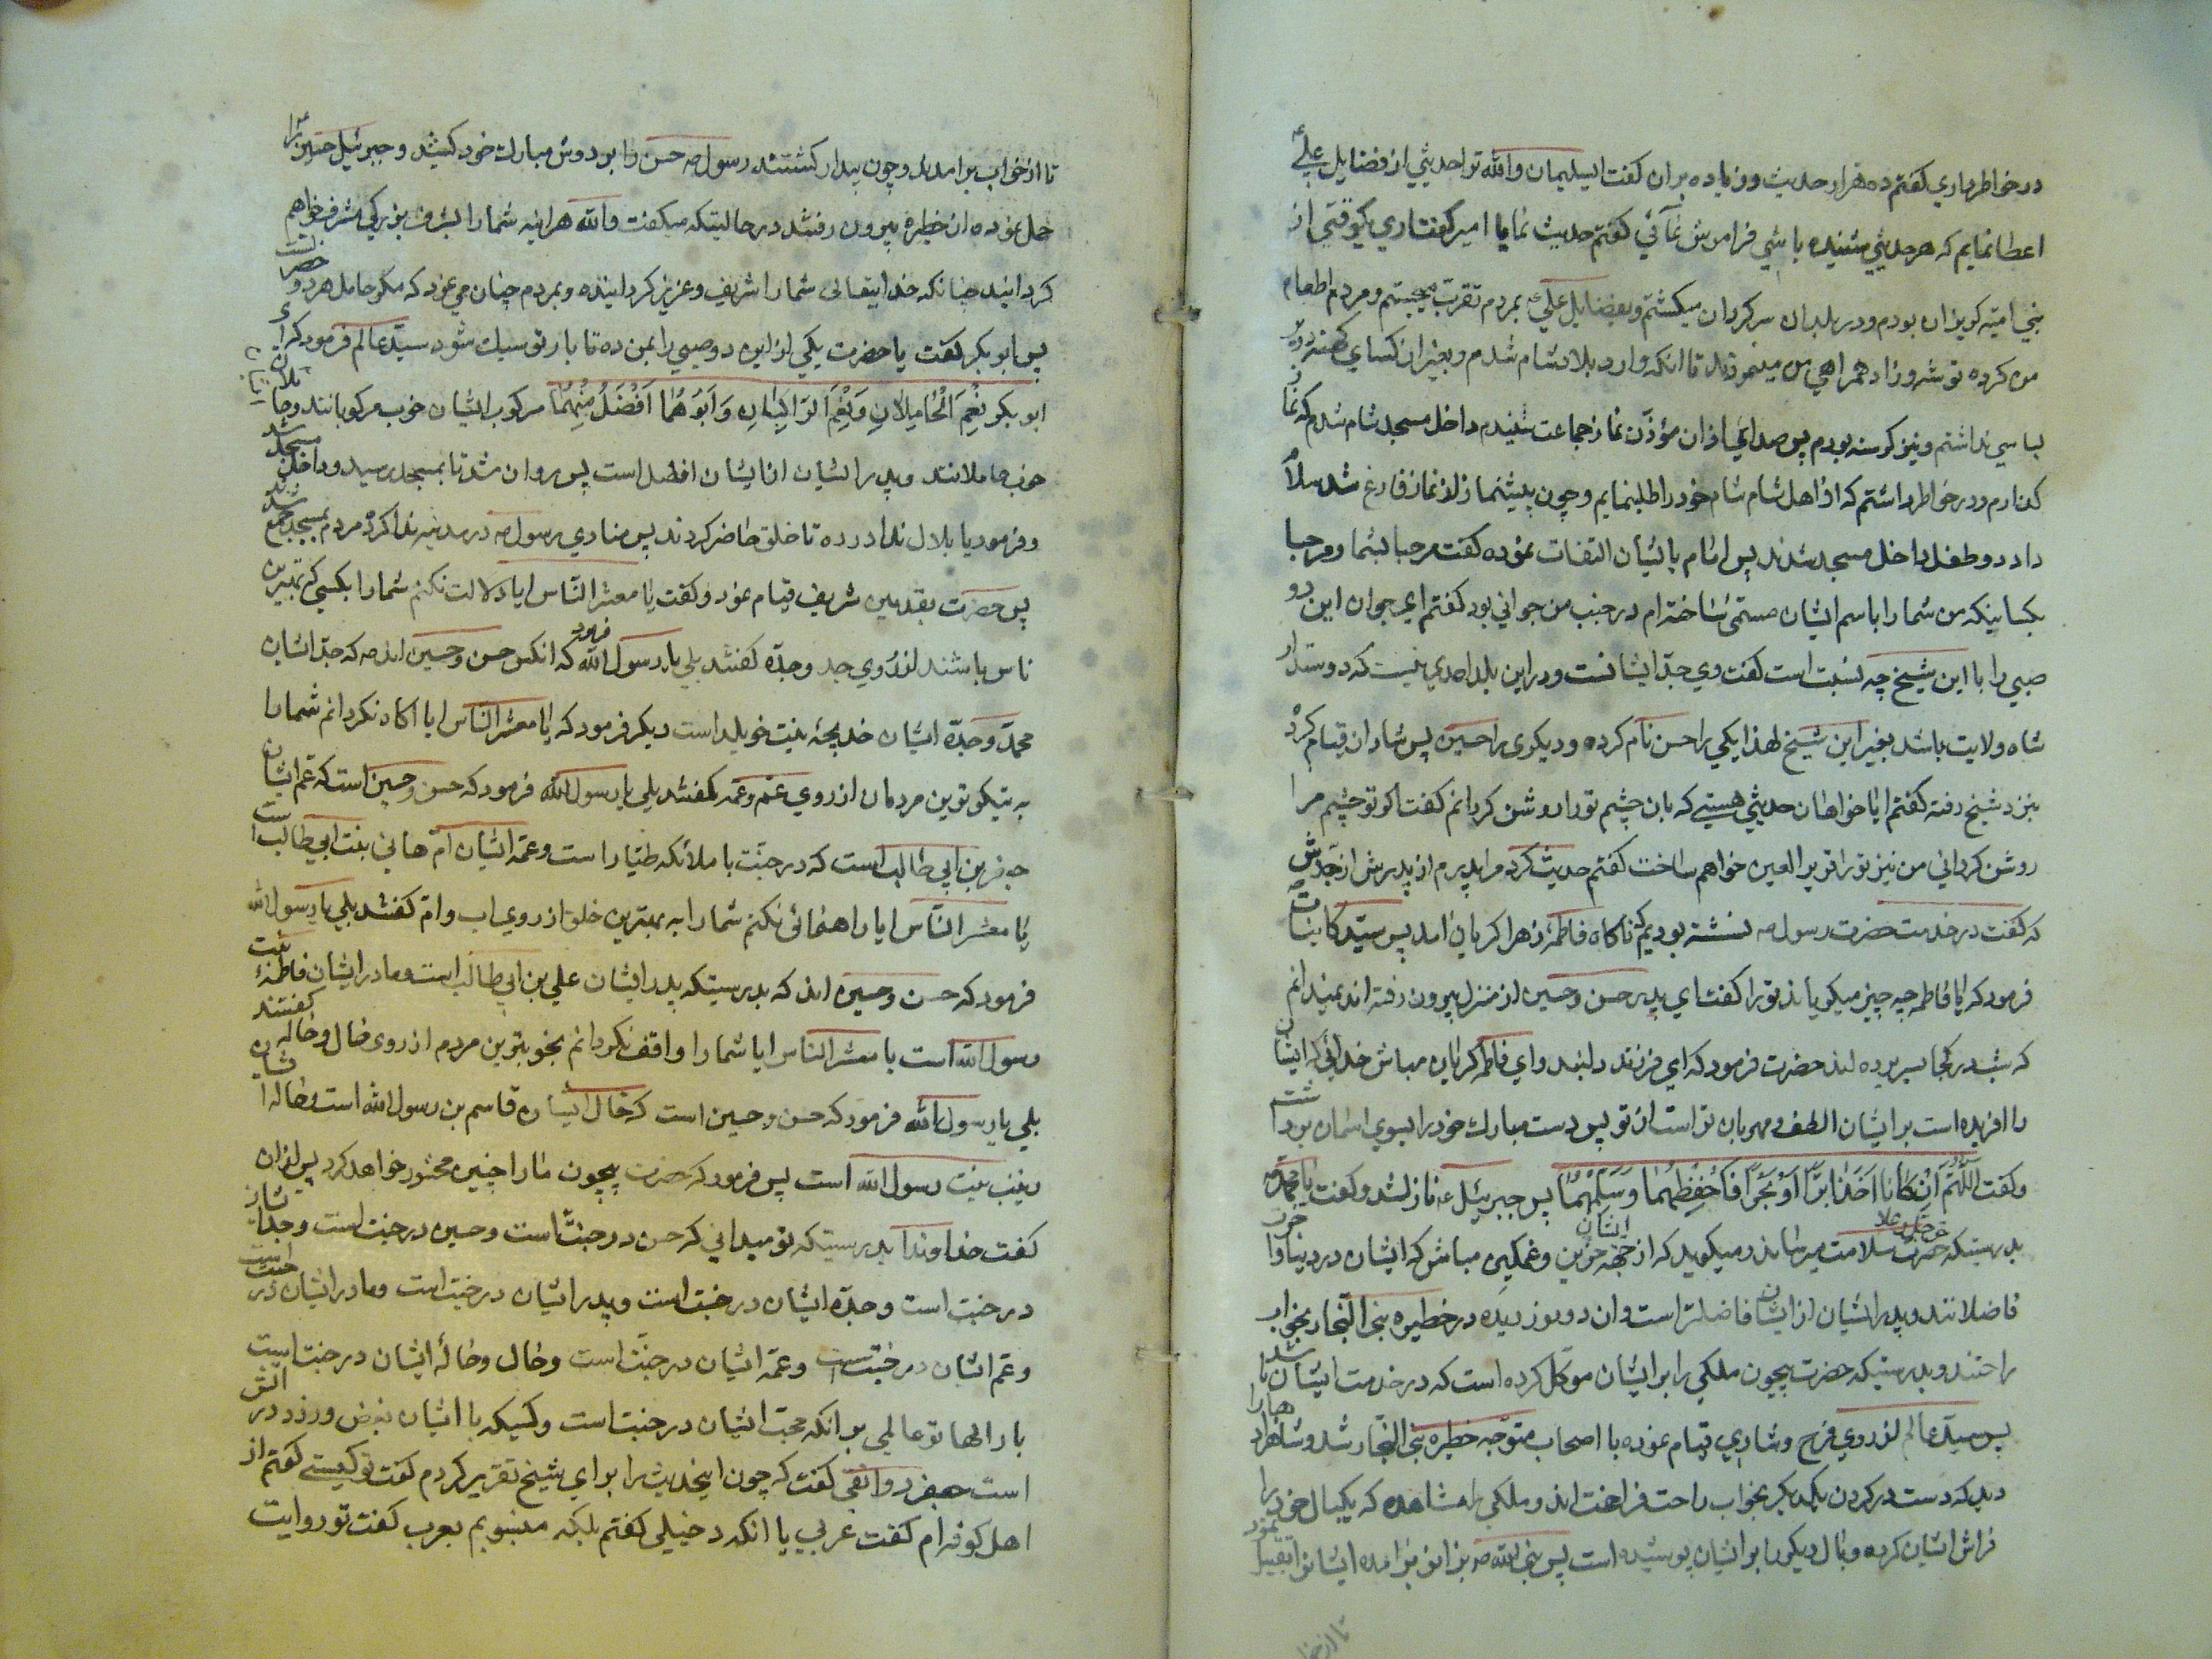 در خاطر داري كفتم ده هزار حديث و زياده بران كفت ايسليمان والله تو را حديثي از فضايل علي ع
اعطا نمايم كه هر حديثي شنيده باشي فراموش نمائي كفتم حديث نما يا امير كفت اري يكوقتي از
بني اميه كريزان بودم و در بلدان سركردان ميكشتم و بفضايل علي ع بمردم تقرب ميجستم و مردم اطعام
من كرده توشه و زاد همراهي من مينمودند تا انكه وارد بلاد شام شدم و بغير از كساي كهنه در بر
لباسي نداشتم و نيز كرسنه بودم پس صداي اذان مؤذن نماز جماعت شنيدم داخل مسجد شام شدم كه نماز
كذارم و در خاطر داشتم كه از اهل شام شام خود را طلبنمايم و چون پيشنماز از نماز فارغ شد سلام
داد دو طفل داخل مسجد شدند پس امام باليشان التفات نموده كفت مرحبا بشما و مرحبا
بكسانيكه من شما را باسم ايشان مسمى ساخته ام در جنب من جواني بود كفتم اي جوان اين دو
صبي را با اين شيخ چه نسبت است كفت وي جد ايشانست و در اين بلد احدي نيست كه دوستدار
شاه ولايت باشد بغير اين شيخ لهذا يكي را حسن نام كرده و ديكري را حسين پس شادان قيام كرده
بنزد شيخ رفته كفتم ايا خواهان حديثي هستي كه بان چشم تو را روشن كردانم كفت اكر تو چشم مرا
روشن كرداني من نيز تو را قرير العين خواهم ساخت كفتم حديث كرد مرا پدرم از پدرش از جدش
كه كفت در خدمت حضرت رسول ص نشسته بوديم كه ناكاه فاطمه زهرا كريان امد پس سيد كاينات ص
فرمود كه يا فاطمه چه چيز ميكرياند تو را كفت اي پدر حسن و حسين از منزل بيرون رفته اند نميدانم
كه شب در كجا بسر برده اند حضرت فرمود كه اي فرزند دلبند و اي فاطمه كريان مباش خدائي كه ايشان
را افريده است بر ايشان الطف و مهربان تر است از تو پس دست مبارك خود را بسوي اسمان برداشت
و كفت اللهم ان كانا اخذا برا او بحرا فاحفظهما وسلمهما پس جبرئيل ع نازلشد و كفت يا محمد
بدرستيكه حضرت حق جل و علا سلامت ميرساند و ميكويد كه از جهه ايشان حزين و غمكين مباش كه ايشان در دنيا و اخرت
فاضلانند و پدر ايشان از ايشان فاضلتر است و ان دو نور ديده در حظيره بني النجار بخواب
رفتند و بدرستيكه حضرت بيچون ملكي را بر ايشان موكل كرده است كه در خدمت ايشان باشد
پس سيد عالم از روي فرح و شادي قيام نموده با اصحاب متوجه حظيره بني النجار شد و شاهزادها را
ديد كه دست در كردن يكديكر بخواب راحت فرا رفته اند و ملكي را مشاهده كه يكبال خود را
فراش ايشان كرده و بال ديكر را بر ايشان پوشيده است پس نبي الله ص بزانو در امده ايشانرا تقبيل نمود
تا از خو
تا از خواب برامدند و چون بيدار كشتند رسول ص حسن را بر دوش مبارك خود كشيد و جبرئيل حسين ع را
حمل نموده از حظيره بيرون رفتند در حالتيكه ميكفت والله هراينه شما را بشرف بزركي مشرف خواهم
كردانيد چنانكه خدايتعالى شما را شريف و عزيز كردانيده و بمردم چنان مي نمود كه مكر حامل هر دو حضرتست
پس ابو بكر كفت يا حضرت يكي از اين دو صبي را بمن ده تا بار تو سبك شود سيد عالم فرمود كه اي
ابو بكر نعم الحاملان ونعم الراكبان وابوهما افضل منهما مركوب ايشان خوب مركوبانند و حاملان
خوب حاملانند و پدر ايشان از ايشان افضل است پس روان شد تا بمسجد رسيد و داخل مسجد شد
و فرمود يا بلال ندا در ده تا خلق حاضر كردند پس منادي رسول ص در مدينه ندا كرد مردم بمسجد جمع شدند
پس حضرت بقدمين شريف قيام نمود و كفت يا معشر الناس ايا دلالت نكنم شما را بكسي كه بهترين
ناس باشند از روي جد و جده كفتند بلي يا رسول الله فرمود كه انكس حسن و حسين اند كه جد ايشان
محمد و جده ايشان خديجه بنت خويلد است ديكر فرمود كه يا معشر الناس ايا اكاه نكردانم شما را
به نيكوترين مردمان از روي عم و عمه كفتند بلي يا رسول الله فرمود كه حسن و حسين است كه عم ايشان
جعفر بن ابي طالب است كه در جنت با ملائكه طيار است و عمه ايشان ام هاني بنت ابي طالب است
يا معشر الناس ايا راهنمائي نكنم شما را به بهترين خلق از روي اب و ام كفتند بلي يا رسول الله
فرمود كه حسن و حسين اند كه بدرستيكه پدر ايشان علي بن ابي طالب است و مادر ايشان فاطمه بنت
رسول الله است يا معشر الناس ايا شما را واقف نكردانم بخوبترين مردم از روي خال و خاله كفتند
بلي يا رسول الله فرمود كه حسن و حسين است كه خال ايشان قاسم بن رسول الله است و خاله ايشان
زينب بنت رسول الله است پس فرمود كه حضرت بيچون ما را چنين محشور خواهد كرد پس از ان
كفت خداوندا بدرستيكه تو ميداني كه حسن در جنت است و حسين در جنت است و جد ايشان
در جنت است و جده ايشان در جنت است و پدر ايشان در جنت است و مادر ايشان در جنت است
و عم ايشان در جنت است و عمه ايشان در جنت است و خال و خاله ايشان در جنت است
بار الها تو عالمي بر انكه محب ايشان در جنت است و كسيكه با ايشان بغض ورزد در اتش
است كفت كه چون اينحديث را براي شيخ تقرير كردم كفت تو كيستي كفتم از
اهل كوفه ام كفت عربي يا انكه دخيلي كفتم بلكه منسوبم بعرب كفت تو روايت